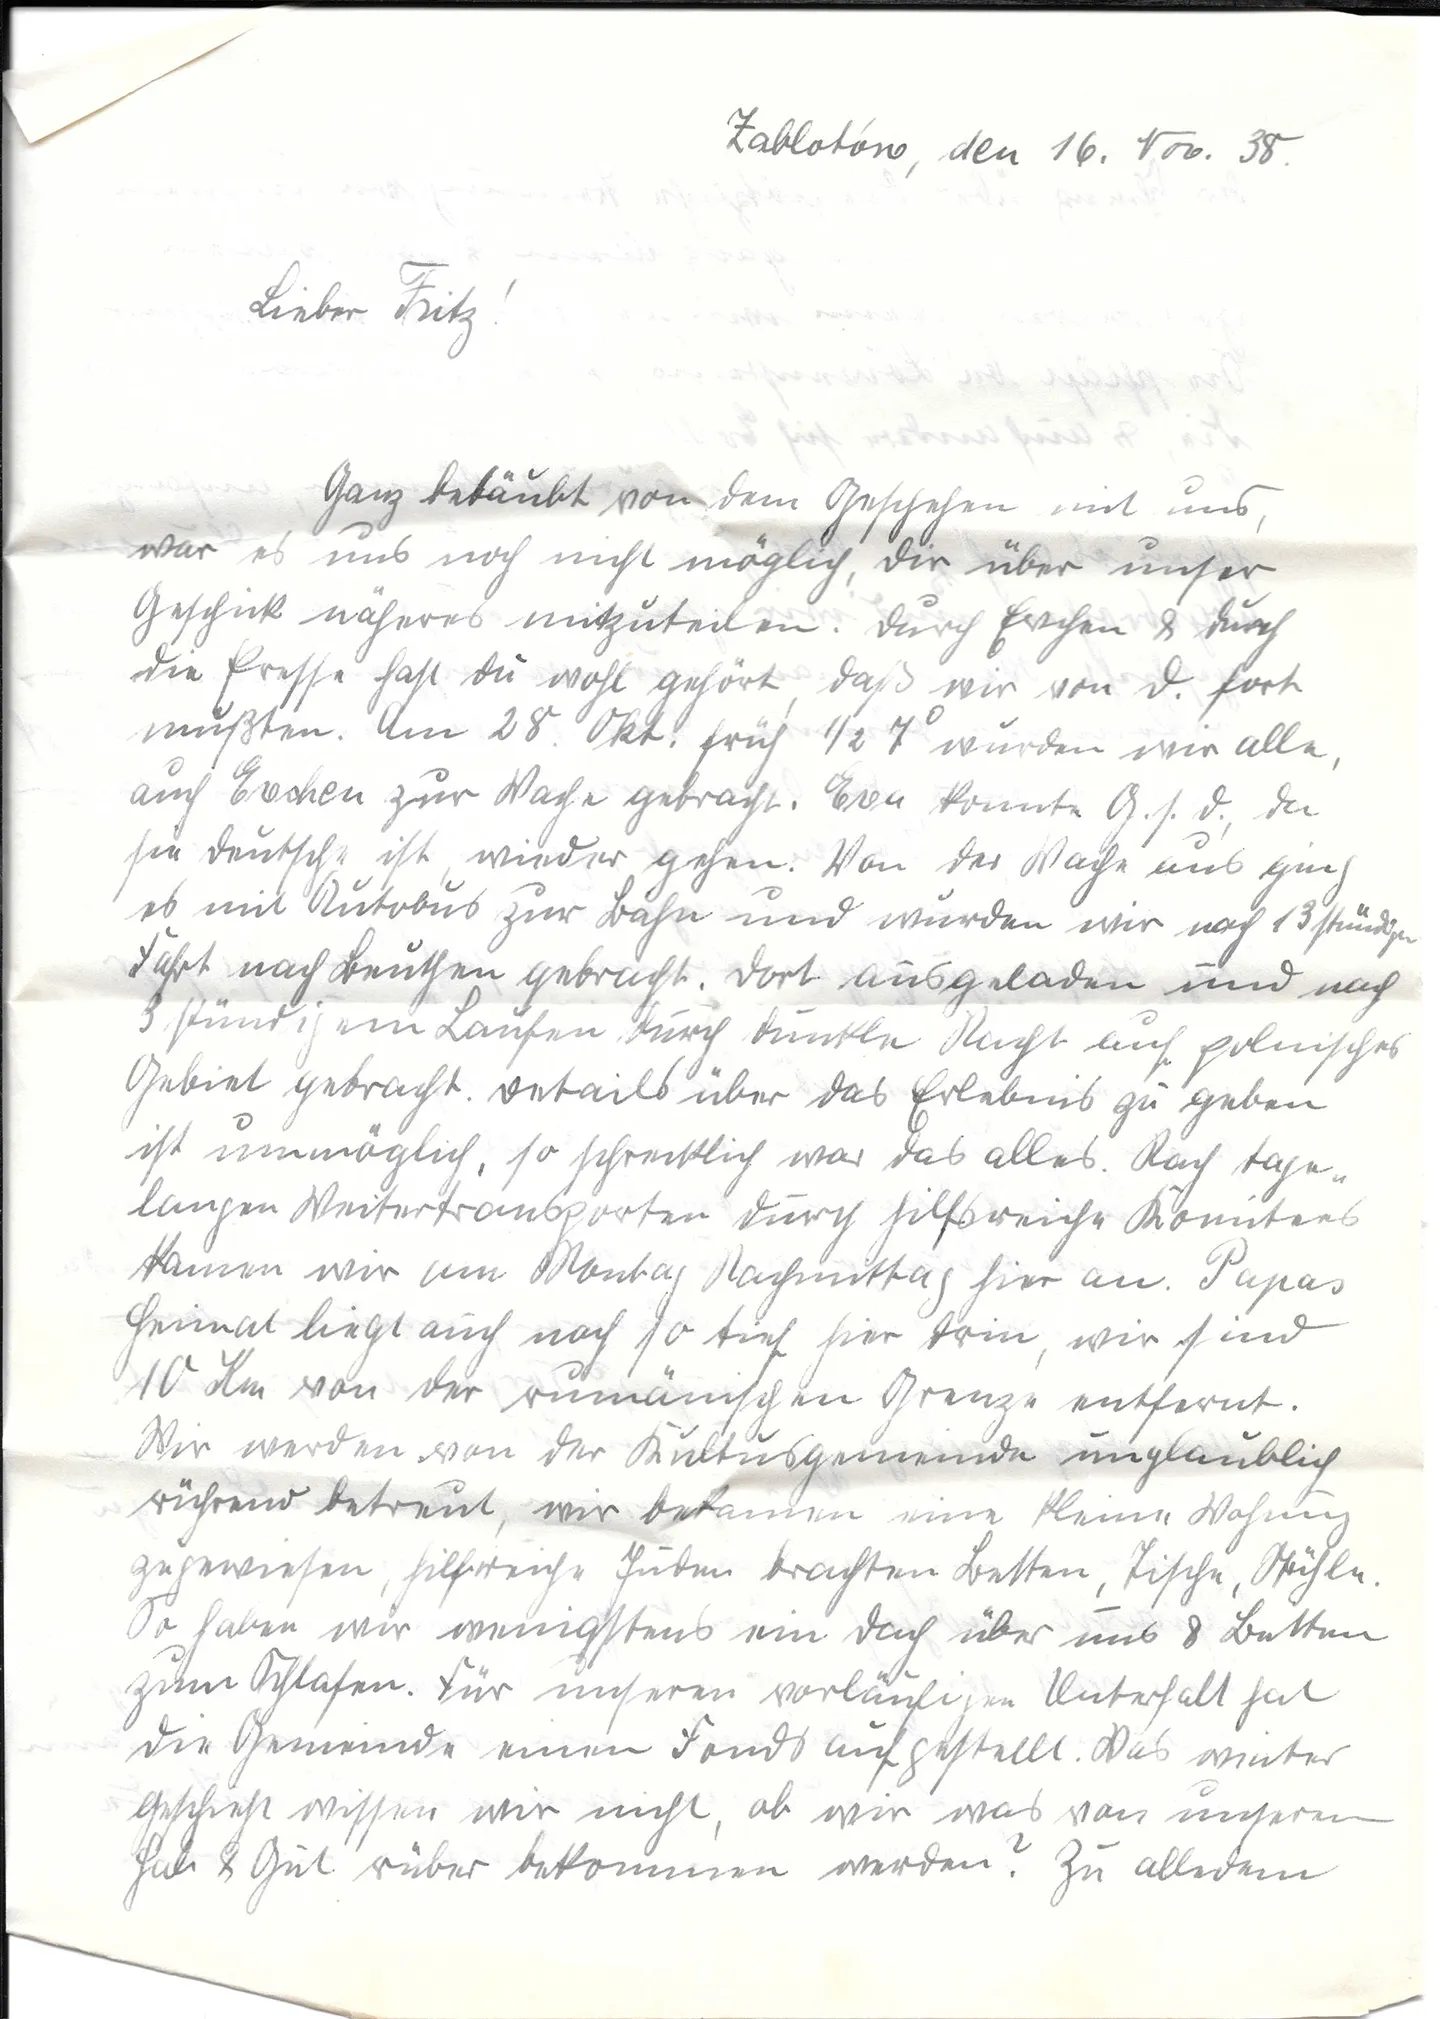 Zablotów, den 16. Nov. 38.
Lieber Fritz!
Ganz betäubt von dem Geschehen mit uns,
war es uns noch nicht möglich, Dir über unser
Geschick näheres mitzuteilen. Durch Evchen & durch
die Presse hast Du wohl gehört, daß wir von D. fort
mußten. Am 28. Okt. früh 1/2 7° wurden wir alle,
auch Evchen zur Wache gebracht. Eva konnte G. s. d., da
sie Deutsche ist, wieder gehen. Von der Wache aus ging
es mit Autobus zur Bahn und wurden wir nach 13 stündiger
Fahrt nach Beuthen gebracht. Dort ausgeladen und nach
3 stündigem Laufen durch dunkle Nacht auf polnisches
Gebiet gebracht. Details über das Erlebnis zu geben
ist unmöglich, so schrecklich war das alles. Nach tage-
langen Weitertransporten durch hilfsreiche Komitees
kamen wir am Montag Nachmittag hier an. Papas
Heimat liegt auch noch so tief hier drin, wir sind
10 Km von der rumänischen Grenze entfernt.
Wir werden von der Kultusgemeinde unglaublich
rührend betreut, wir bekamen eine kleine Wohnung
zugewiesen, hilfreiche Juden brachten Betten, Tische, Stühle.
So haben wir wenigstens ein Dach über uns & Betten
zum Schlafen. Für unseren vorläufigen Unterhalt hat
die Gemeinde einen Fonds aufgestellt. Was weiter
geschieht wissen wir nicht, ob wir was von unserem
Hab & Gut rüber bekommen werden? Zu alledem